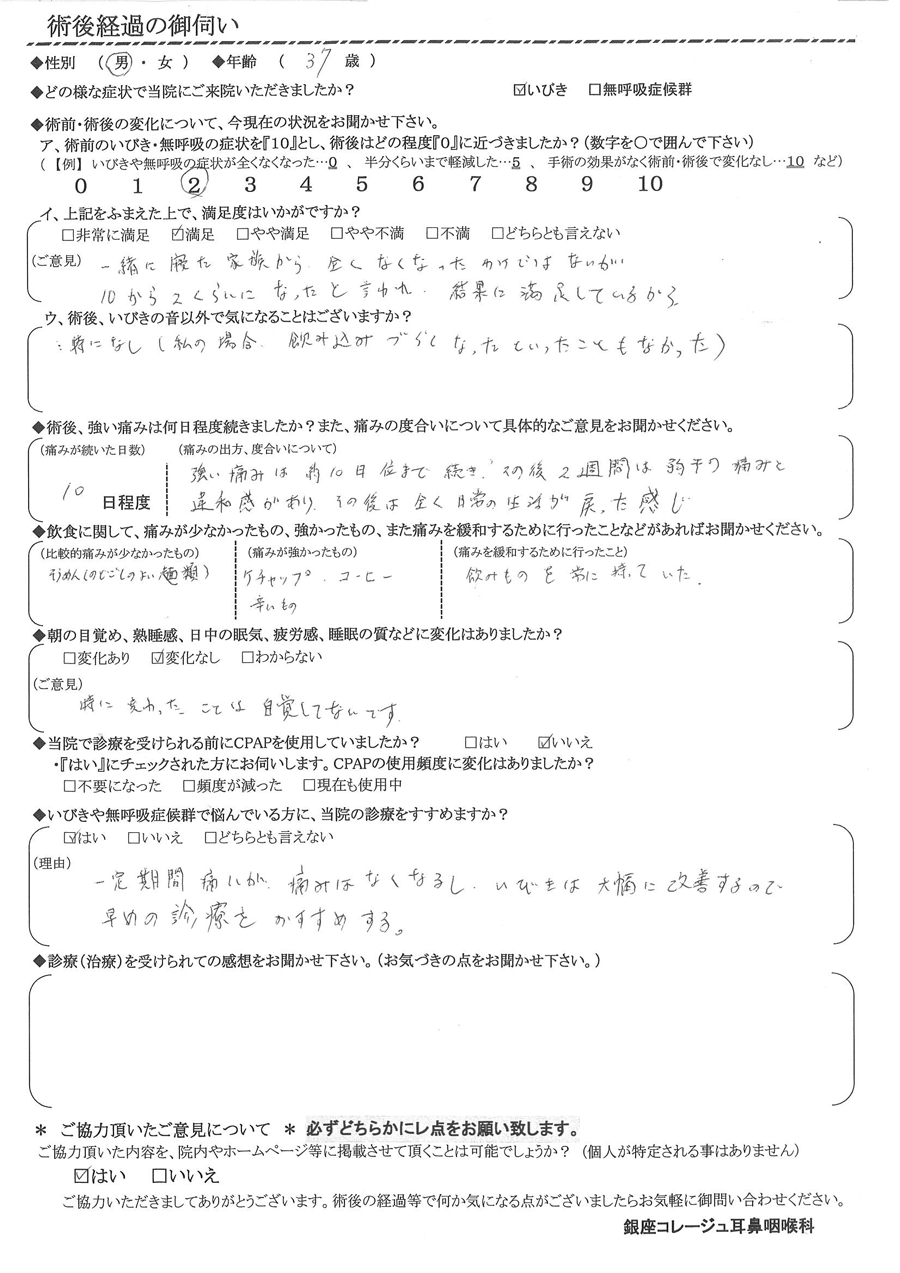 術後経過の御伺い
◆性別 ( 男 ・ 女 ) ◆年齢 ( 37 歳 )
◆どの様な症状で当院にご来院いただきましたか? ☑いびき □無呼吸症候群
◆術前・術後の変化について、今現在の状況をお聞かせ下さい。
ア、術前のいびき・無呼吸の症状を『10』とし、術後はどの程度『0』に近づきましたか?(数字を〇で囲んで下さい)
(【例】いびきや無呼吸の症状が全くなくなった…0 、 半分くらいまで軽減した…5 、 手術の効果がなく術前・術後で変化なし…10 など)
0 1 2 3 4 5 6 7 8 9 10
イ、上記をふまえた上で、満足度はいかがですか?
□非常に満足 ☑満足 □やや満足 □やや不満 □不満 □どちらとも言えない
(ご意見) 一緒に寝た家族から、全くなくなったわけではないが
10から2くらいになったと言われ、結果に満足しているから。
ウ、術後、いびきの音以外で気になることはございますか?
:特になし(私の場合、飲み込みづらくなったといったこともなかった)
◆術後、強い痛みは何日程度続きましたか?また、痛みの度合いについて具体的なご意見をお聞かせください。
(痛みが続いた日数) (痛みの出方、度合いについて)
10 日程度
強い痛みは約10日位まで続き、その後2週間は若干の痛みと
違和感があり、その後は全く日常の生活が戻った感じ
◆飲食に関して、痛みが少なかったもの、強かったもの、また痛みを緩和するために行ったことなどがあればお聞かせください。
(比較的痛みが少なかったもの) (痛みが強かったもの) (痛みを緩和するために行ったこと)
そうめん(のどごしのよい麺類) ケチャップ、コーヒー 飲みものを常に持っていた。
辛いもの
◆朝の目覚め、熟睡感、日中の眠気、疲労感、睡眠の質などに変化はありましたか?
□変化あり ☑変化なし □わからない
(ご意見)
特に変わったことは自覚してないです。
◆当院で診療を受けられる前にCPAPを使用していましたか? □はい ☑いいえ
・『はい』にチェックされた方にお伺いします。CPAPの使用頻度に変化はありましたか?
□不要になった □頻度が減った □現在も使用中
◆いびきや無呼吸症候群で悩んでいる方に、当院の診療をすすめますか?
☑はい □いいえ □どちらとも言えない
(理由)
一定期間痛いが、痛みはなくなるし、いびきは大幅に改善するので
早めの診療をおすすめする。
◆診療(治療)を受けられての感想をお聞かせ下さい。(お気づきの点をお聞かせ下さい。)
＊ ご協力頂いたご意見について ＊ 必ずどちらかにレ点をお願い致します。
ご協力頂いた内容を、院内やホームページ等に掲載させて頂くことは可能でしょうか? (個人が特定される事はありません)
☑はい □いいえ
ご協力いただきましてありがとうございます。術後の経過等で何か気になる点がございましたらお気軽に御問い合わせください。
銀座コレージュ耳鼻咽喉科